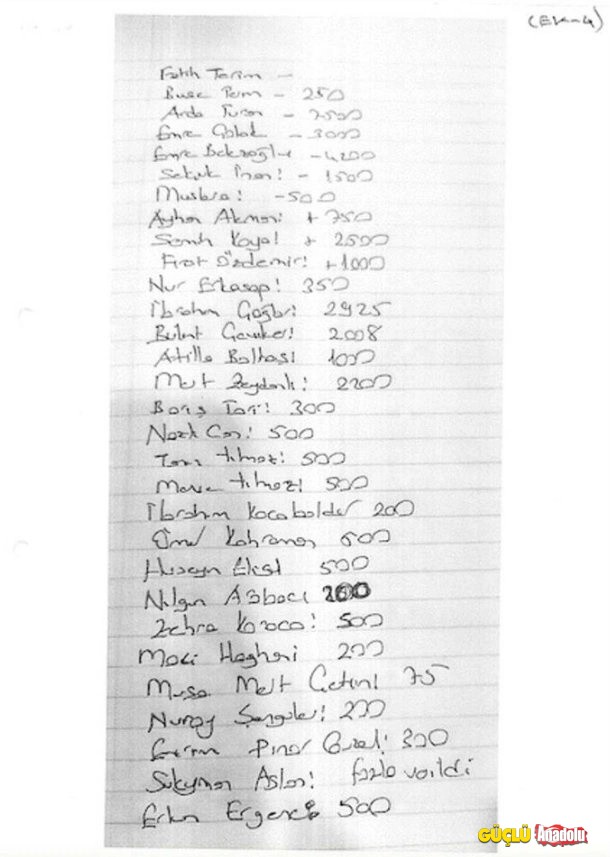 (Ek-4)
Fatih Terim -
Buse Terim - 250
Arda Turan - 7500
Emre Çolak - 3000
Emre Belezoğlu - 4200
Selçuk İnan! - 1500
Muslera! - 500
Ayhan Akman! + 750
Semih Kaya! + 2500
Fırat Özdemir! + 1000
Nur Erkasap! 350
İbrahim Çağlar! 2925
Bülent Çeviker! 2008
Atilla Baltaş! 1000
Mert Zeydanlı! 2200
Barış Tari! 300
Nazlı Can! 500
Yılmaz! 500
Merve Yılmaz! 500
İbrahim Kocabalder 200
Ömer Kahraman 500
Huseyn Ekşi 500
Nilgün Ağbacı 200
Zehra Karaca! 500
Haghani 200
Musa Mert Çetin! 75
Nuray Şengüler! 200
Pınar Güzel! 300
Süleyman Aslan! fazla verildi
Erkan 500
GÜÇLÜ Anadolu